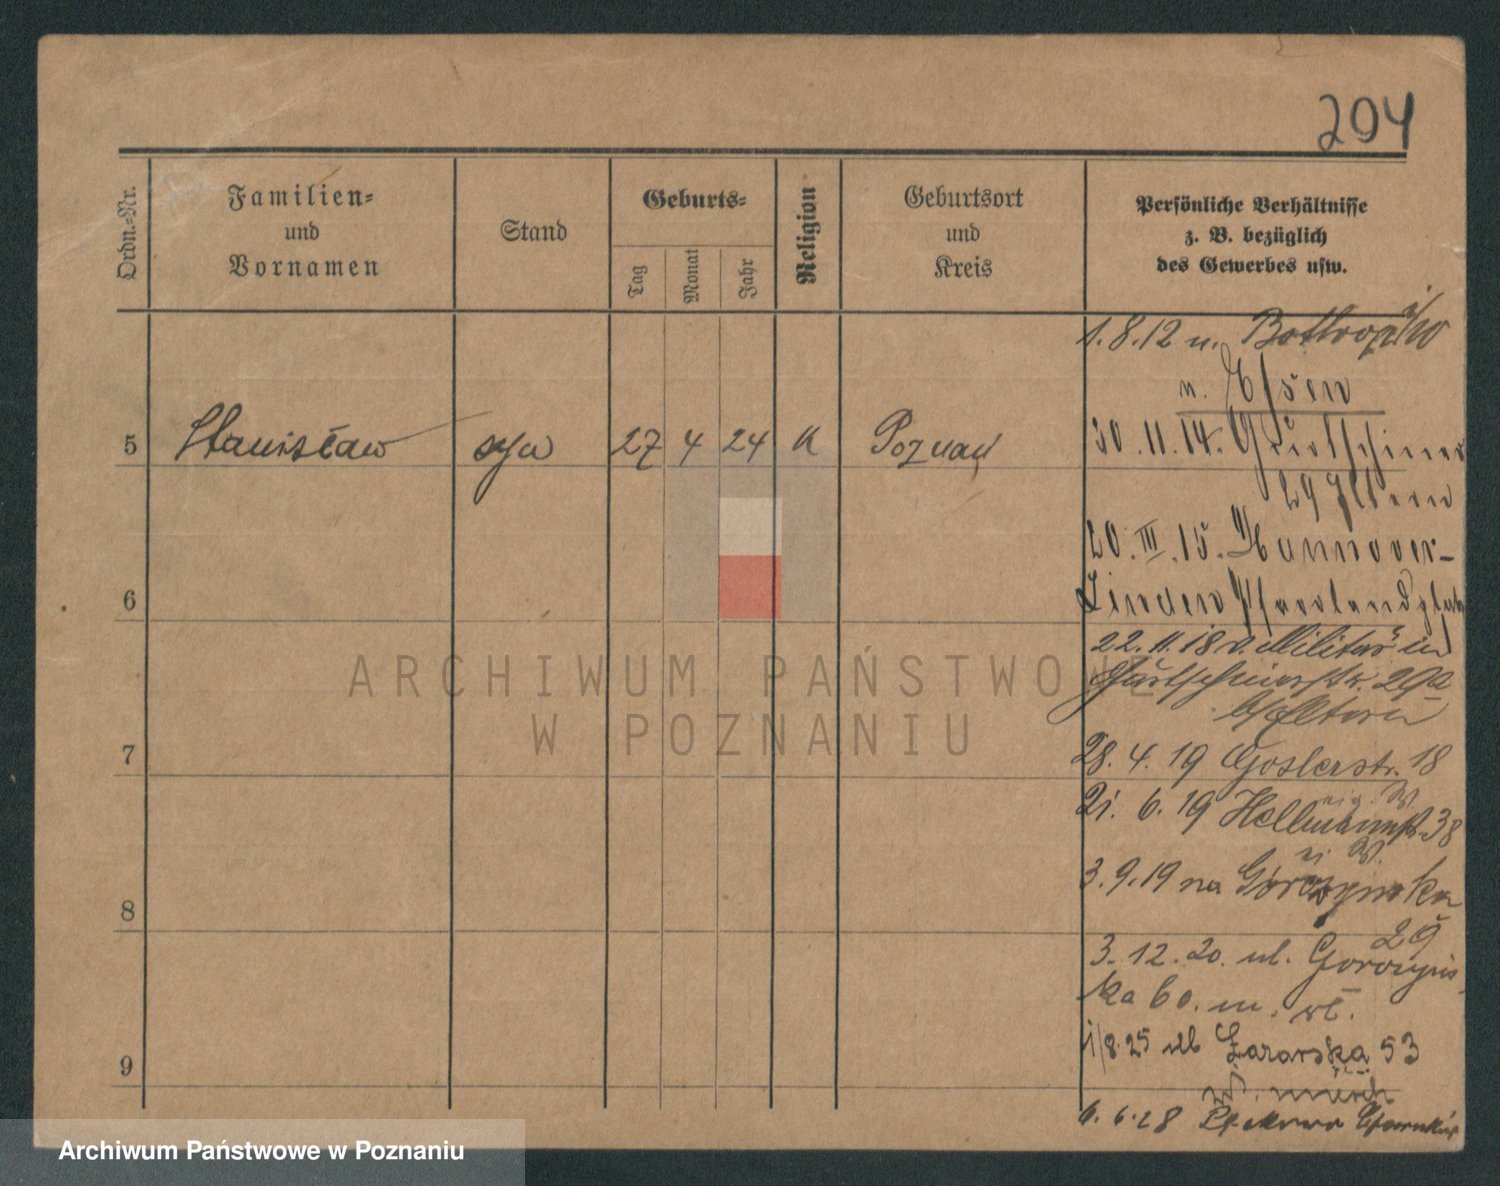 204
Ordn.-Nr.
Familien-
und
Vornamen
Stand
Geburts-
Tag
Monat
Jahr
Religion
Geburtsort
und
Kreis
Persönliche Verhältnisse
z. B. bezüglich
des Gewerbes usw.
1.8.12 n. Bottrop
n. Essen
5 Stanisław syn 27 4 24 K Poznań
30.11.14.
29
20.III.15. Hannover-
Linden
6
22.11.18 v. Militär in
29a
28.4.19 Goslerstr. 18
7
21. 6. 19 38
3.9.19 na Górczyńska
29
8
3.12.20. ul. Gorczyńs
ka 60. m. wł.
1/8.25 53
9
6.6.28
ARCHIWUM PAŃSTWOWE
W POZNANIU
Archiwum Państwowe w Poznaniu